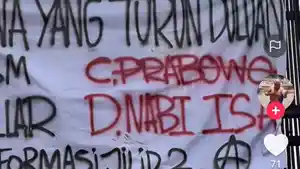 YANG TURUN DULUAN
C.PRABOWO
LAR D.NABI ISA
FORMASI JILID 2
71